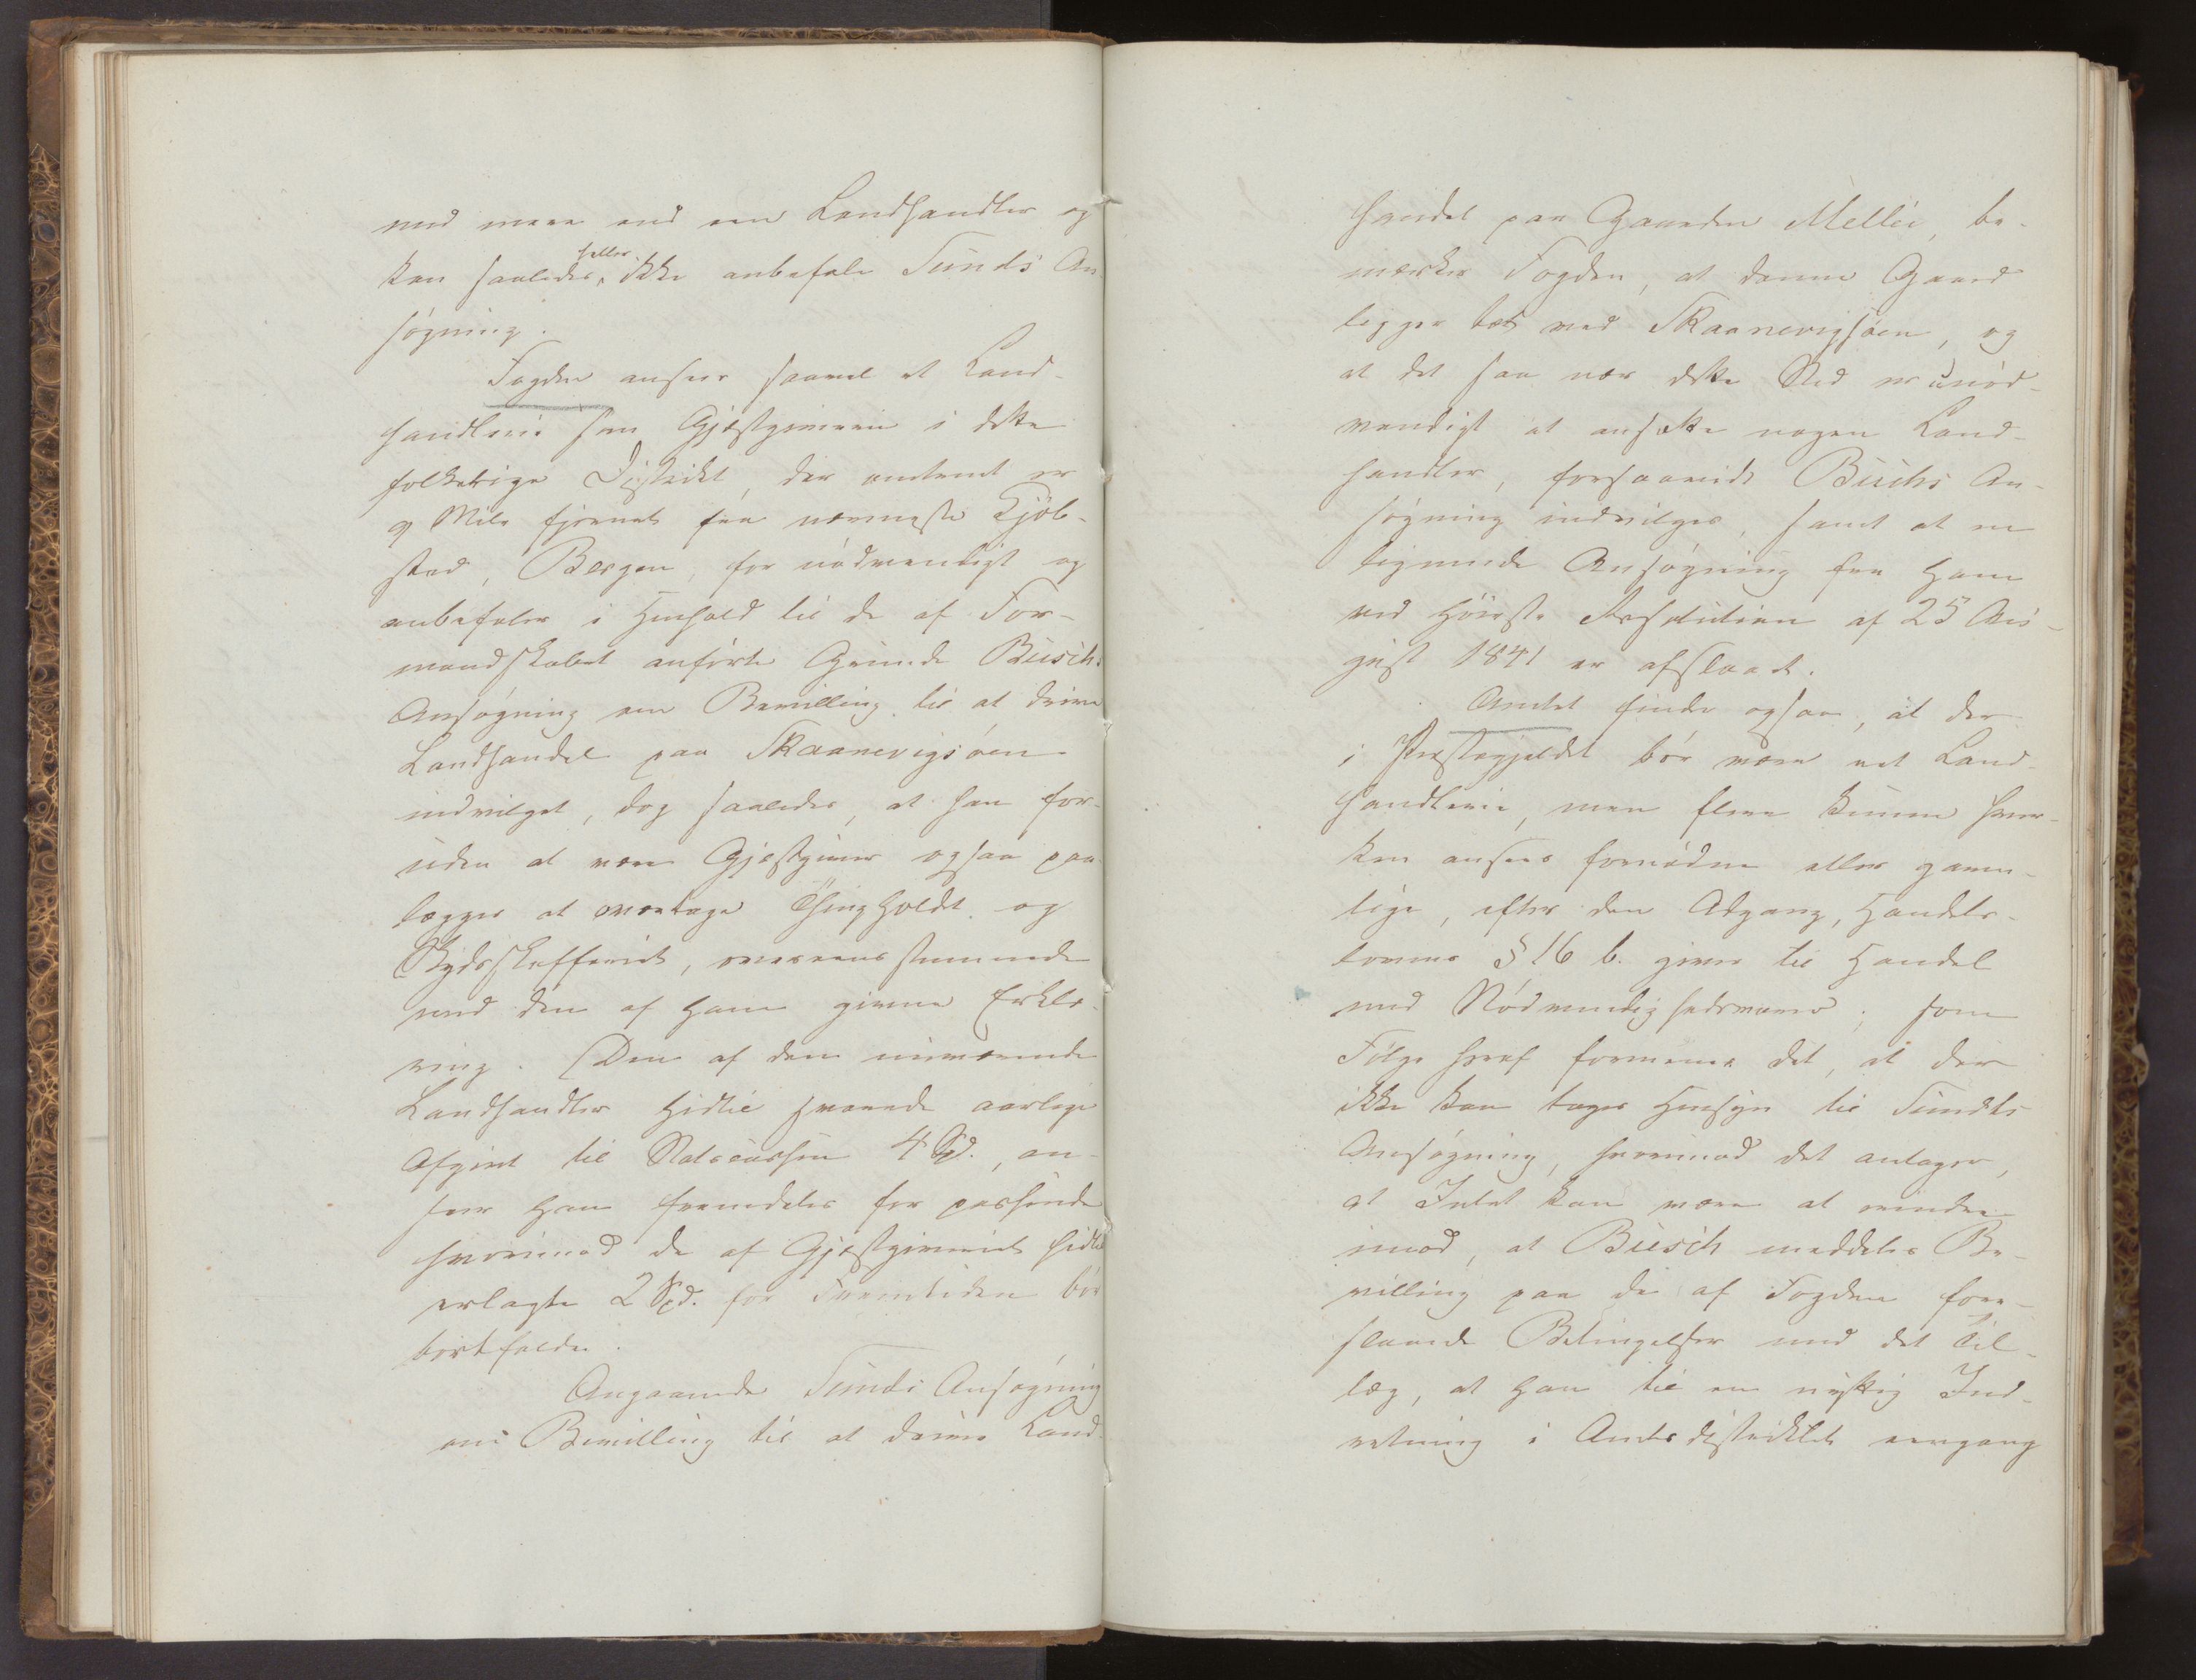 med mere end een Landhandler og
kan saaledes heller ikke anbefale Sunds An-
søgning.
Fogden anseer saavel et Land-
handlerie som Gjæstgiverie i dette
folkerige District, der omtrent er
9 Mile fjernet fra nærmeste Kjøb-
stad, Bergen, for nødvendigt og
anbefaler i Henhold til de af For-
mandskabet anførte Grunde Buschs
Ansøgning om Bevilling til at drive
Landhandel paa Skaanevigsøen
indvilget, dog saaledes, at han for-
uden at være Gjæstgiver ogsaa paa-
lægges at modtage Thingholdt og
Skydsskafferiet, overeensstemmende
med den af ham givne Erklæ-
ring. Den af den nuværende
Landhandler hidtil svarede aarlige
Afgivt til Statscassen 4 Spd., an-
seer han fremdeles for passende
hvorimod de af Gjæstgiveriet hidtil
erlagte 2 Spd. for Fremtiden bør
bortfalde.
Angaaende Sunds Ansøgning
om Bevilling til at drive Land-
handel paa Gaarden Milleé, be-
mærker Fogden, at denne Gaard
ligger tæt ved Skaanevigsøen, og
at det saa nær dette Sted er unød-
vendigt at ansætte nogen Land-
handler, forsaavidt Buschs An-
søgning indvilges, samt at en
lignende Ansøgning fra ham
ved Høieste Resolution af 25 Au-
gust 1841 er afslaaet.
Amtet finder ogsaa, at der
i Præstegjeldet bør være eet Land-
handlerie, men flere kunne hver-
ken ansees fornødne eller gavn-
lige, efter den Adgang, Handels-
lovens § 16 b. giver til Handel
med Nødvendighedsvarer; som
Følge heraf formener det, at der
ikke kan tages Hensyn til Sundts
Ansøgning, hvorimod det antager,
at Intet kan være at erindre
imod, at Busch meddeles Be-
villing paa de af Fogden fore-
slaaede Betingelser med det Til-
læg, at han til en nyttig Ind-
retning i Amtsdistriktet eengang